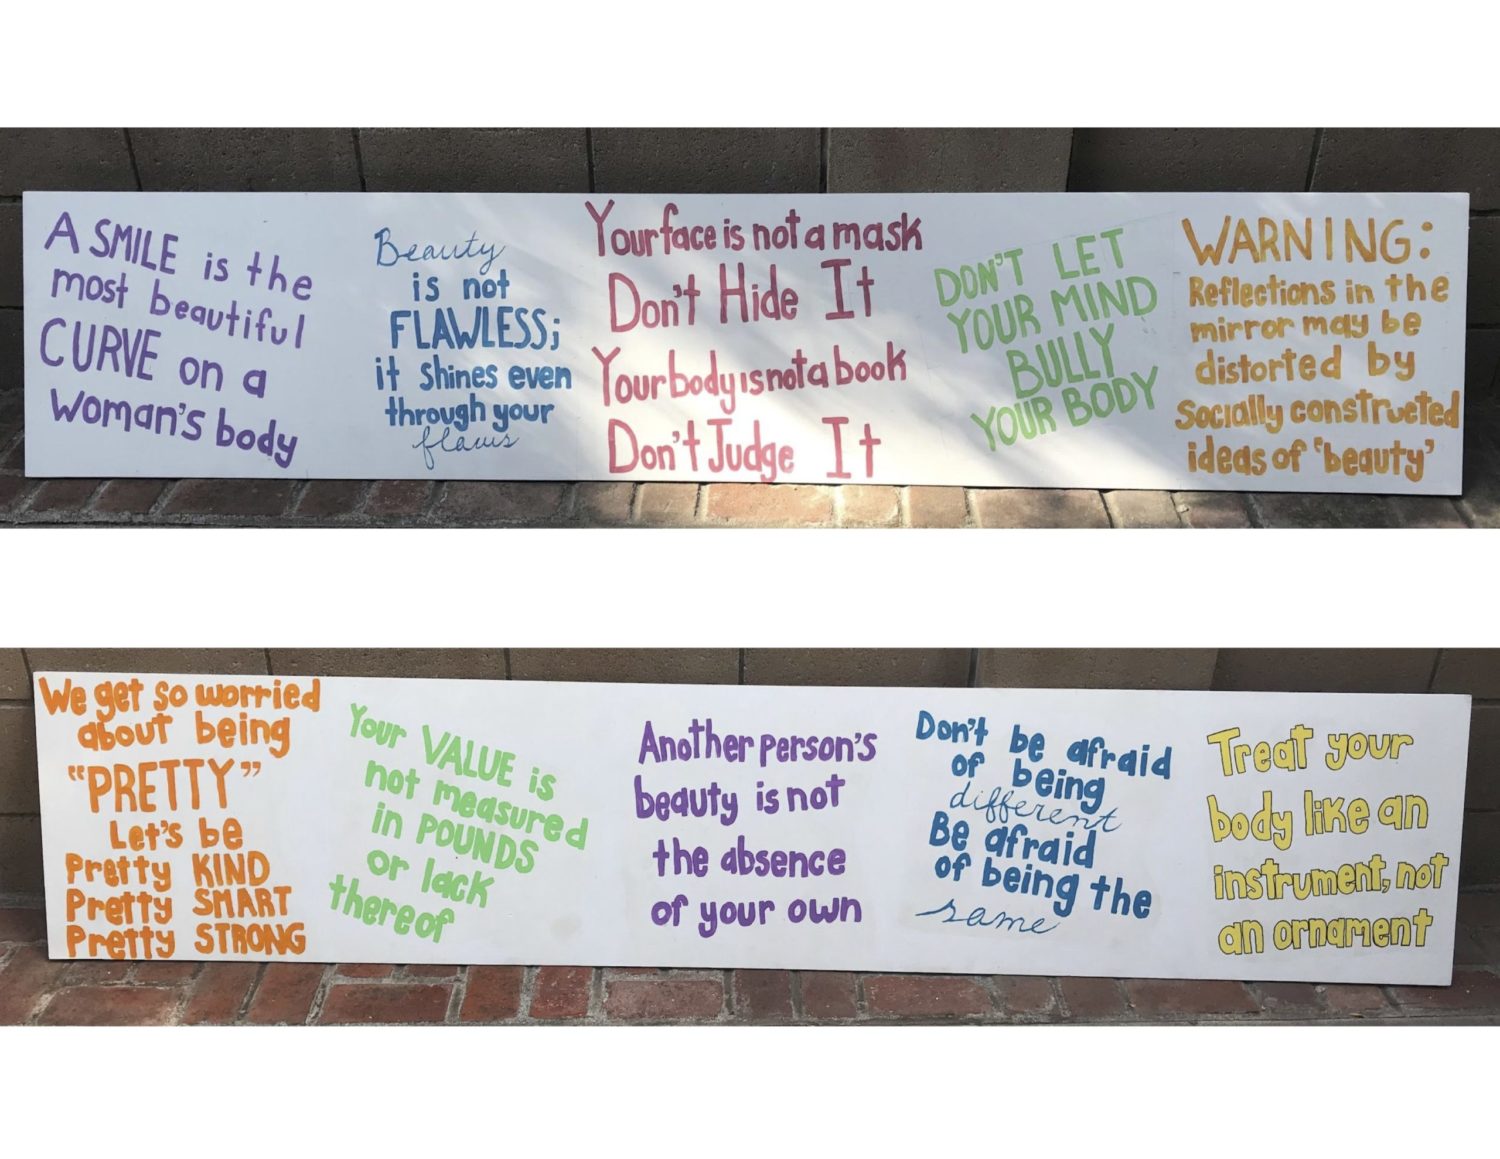 A SMILE is the
most beautiful
CURVE on a
woman's body
Beauty
is not
FLAWLESS;
it shines even
through your
flaws
Your face is not a mask
Don't Hide It
Your body is not a book
Don't Judge It
DON'T LET
YOUR MIND
BULLY
YOUR BODY
WARNING:
Reflections in the
mirror may be
distorted by
socially constructed
ideas of 'beauty'
We get so worried
about being
"PRETTY"
Let's be
Pretty KIND
Pretty SMART
Pretty STRONG
Your VALUE is
not measured
in POUNDS
or lack
thereof
Another person's
beauty is not
the absence
of your own
Don't be afraid
of being
different
Be afraid
of being the
same
Treat your
body like an
instrument, not
an ornament